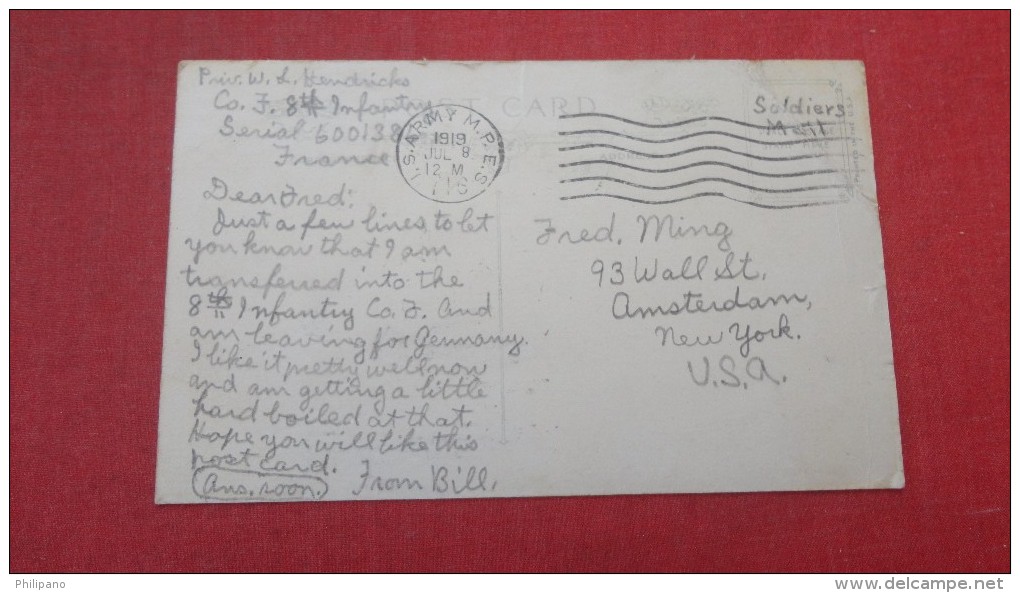 Priv. W. L. Hendricks
Co. F. 8th Infantry
Serial 600138
France
POST CARD
Soldiers
Mail
U.S. ARMY M.P.E.S.
1919
JUL 8
12 M
716
Dear Fred:
Just a few lines to let
you know that I am
transferred into the
8th Infantry Co. F. and
am leaving for Germany.
I like it pretty well now
and am getting a little
hard boiled at that.
Hope you will like this
post card.
Ans. soon. From Bill.
Fred. Ming
93 Wall St.
Amsterdam,
New York.
U.S.A.
Philipano
www.delcampe.net